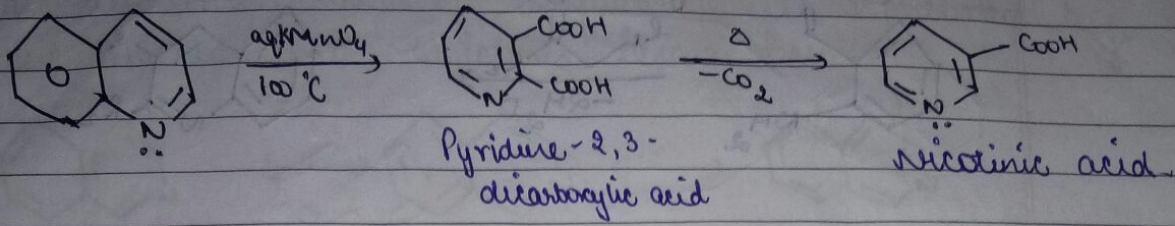 aqKMnO4
100°C
COOH
COOH
N
Δ
-CO2
COOH
N
N
Pyridine-2,3-
dicarboxylic acid
Nicotinic acid